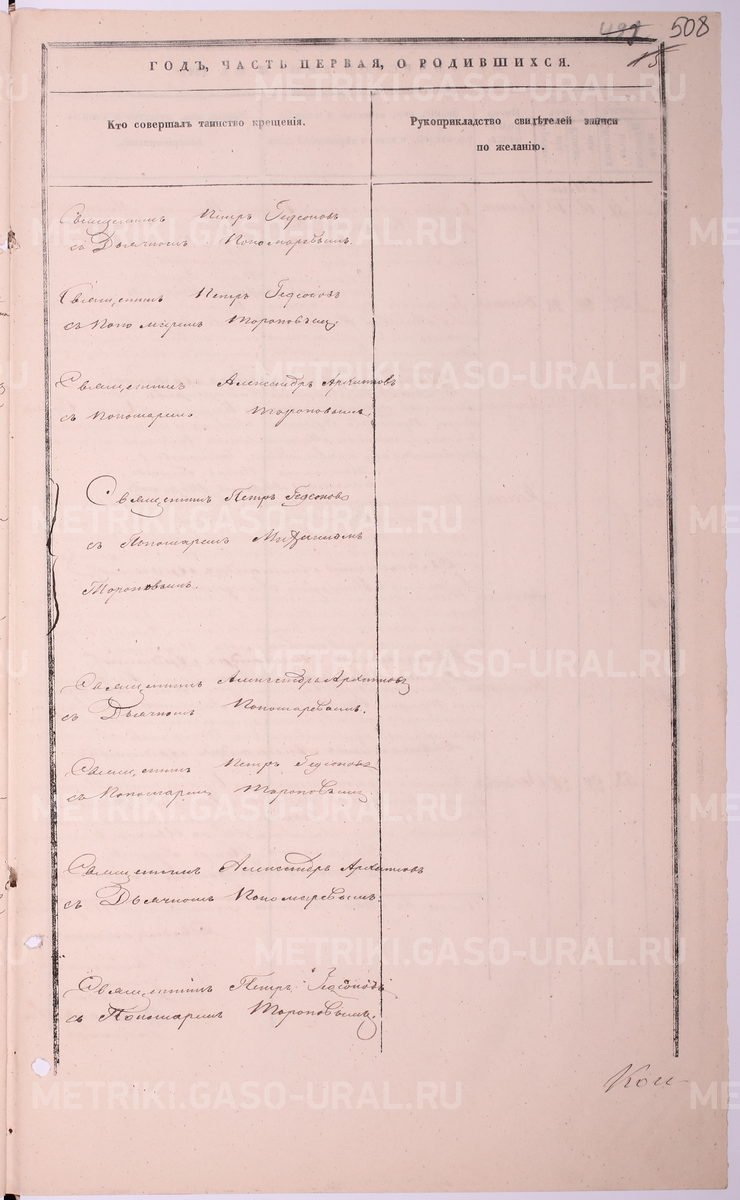 508
15
ГОДЪ, ЧАСТЬ ПЕРВАЯ, О РОДИВШИХСЯ.
Кто совершалъ таинство крещенія.
Рукоприкладство свидѣтелей записи
по желанію.
Священникъ Петръ Гедеоновъ
съ Дьячкомъ Пономаревымъ.
Священникъ Петръ Гедеоновъ
съ Пономаремъ Тороповымъ
Священникъ Александръ Архиповъ
съ Пономаремъ Тороповымъ
Священникъ Петръ Гедеоновъ
съ Пономаремъ
Тороповымъ.
Священникъ Александръ Архиповъ
съ Дьячкомъ Пономаревымъ.
Священникъ Петръ Гедеоновъ
съ Пономаремъ Тороповымъ.
Священникъ Александръ Архиповъ
съ Дьячкомъ Пономаревымъ.
Священникъ Петръ Гедеоновъ
съ Пономаремъ Тороповымъ.
METRIKI.GASO-URAL.RU